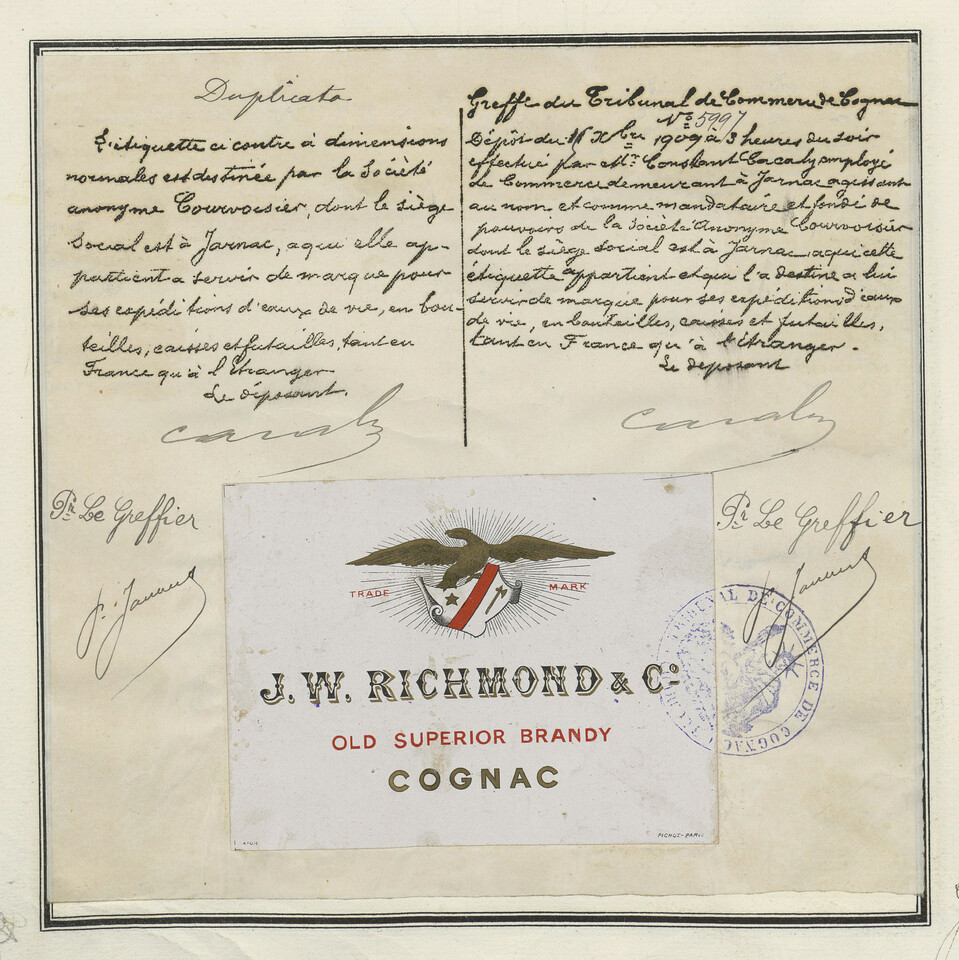 Duplicata
L'étiquette ci contre à dimensions
normales est destinée par la Société
anonyme Courvoisier, dont le siège
social est à Jarnac, a qui elle ap-
partient a servir de marque pour
ses expéditions d'eaux de vie, en bou-
teilles, caisses et futailles, tant en
France qu'à l'étranger
Le déposant.
Greffe du Tribunal de Commerce de Cognac
No 5997
Dépôt du 16 Xbre 1909 à 3 heures du soir
effectué par Mr. Constant Cacaly employé
de Commerce demeurant à Jarnac agissant
au nom et comme mandataire et fondé de
pouvoirs de la Société Anonyme Courvoisier
dont le siège social est à Jarnac, a qui cette
étiquette appartient et qui l'a destine a lui
servir de marque pour ses expéditions d'eaux
de vie, en bouteilles, caisses et futailles,
tant en France qu'à l'étranger.
Le déposant
Cacaly
Cacaly
Pr Le Greffier
Pr Le Greffier
TRADE MARK
J. W. RICHMOND & Co
OLD SUPERIOR BRANDY
COGNAC
PICHOT-PARIS
TRIBUNAL DE COMMERCE DE COGNAC